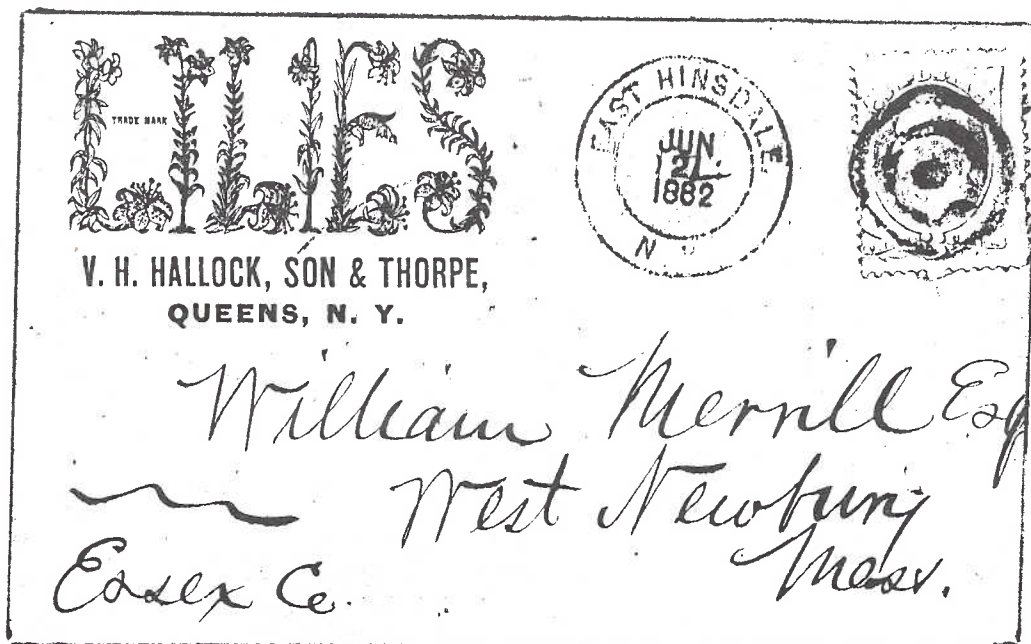 LILIES
TRADE MARK
V. H. HALLOCK, SON & THORPE,
QUEENS, N. Y.
EAST HINSDALE
JUN.
21
1882
N. Y.
William Merrill Esq
West Newbury
Mass.
Essex Co.